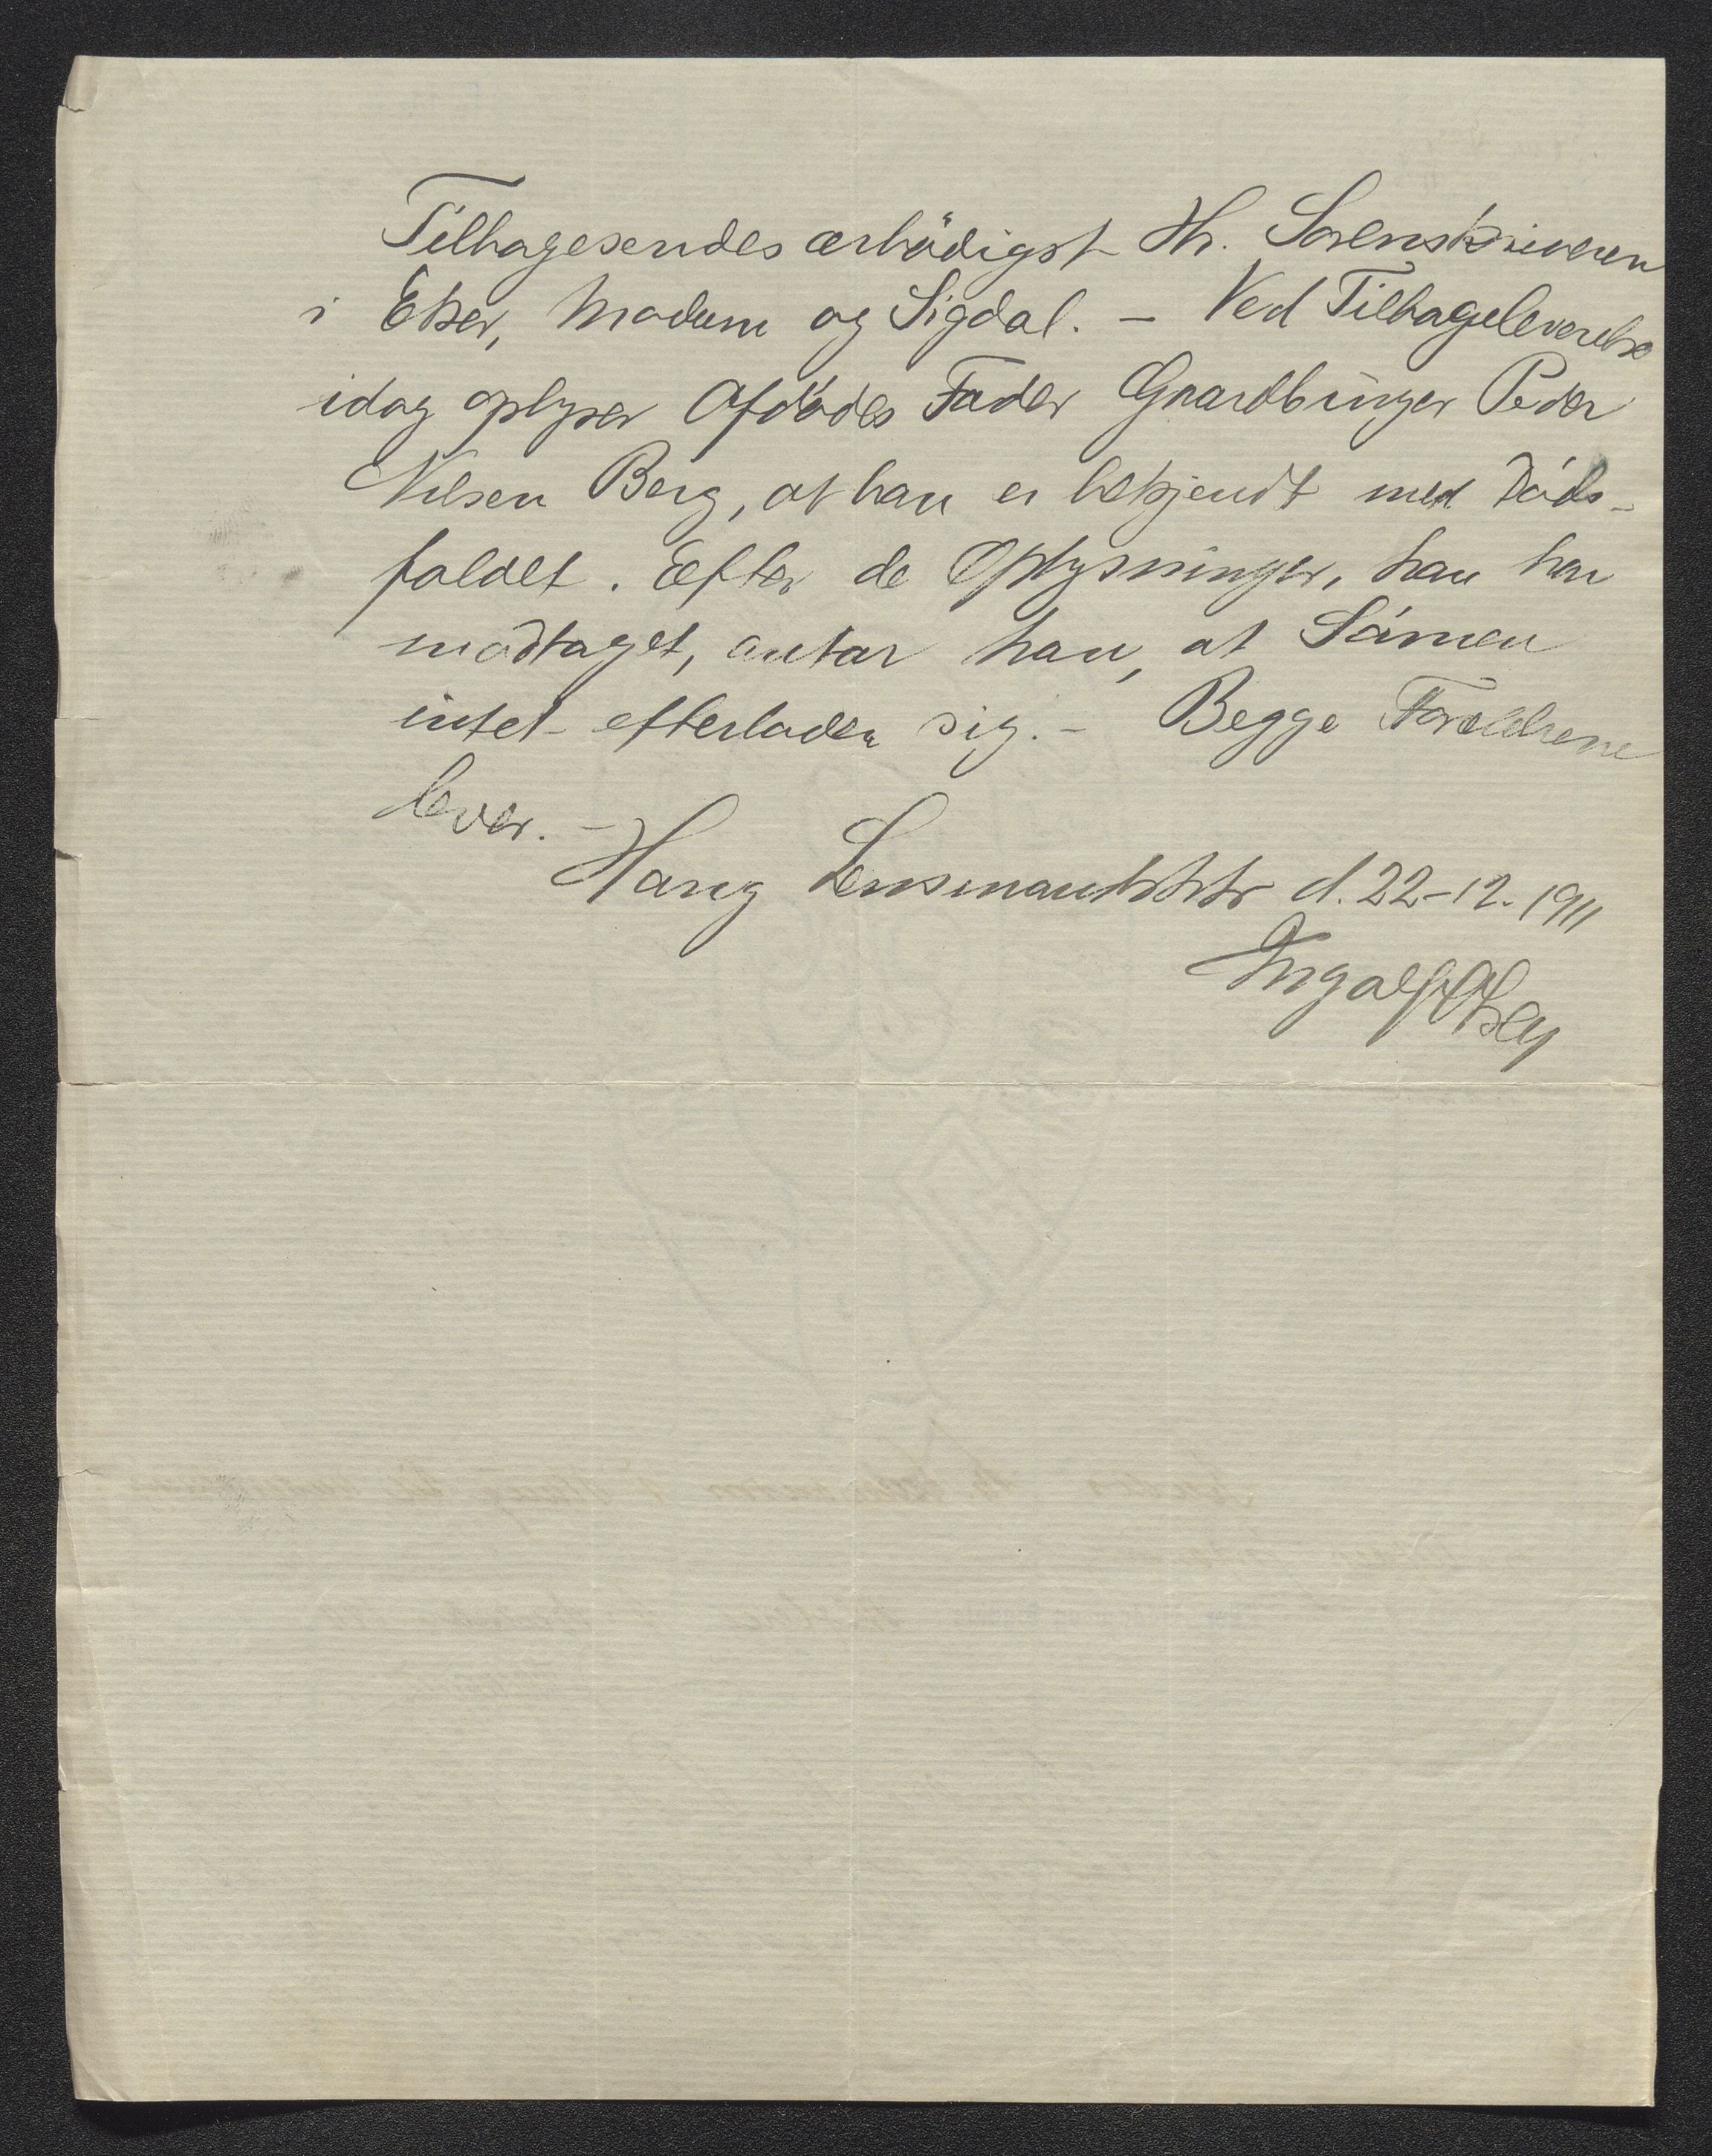 Tilbagesendes ærbödigst Hr. Sorenskriveren
i Eker, Modum og Sigdal. – Ved Tilbageleverelse
idag oplyser Afdödes Fader Gaardbruger Peder
Nilsen Berg, at han er bekjendt med Döds-
faldet. Efter de Oplysninger, han har
modtaget, antar han, at Sönnen
intet efterlader sig. – Begge Forældrene
lever. –
Haug Lensmandsktr d. 22-12-1911
Ingolf